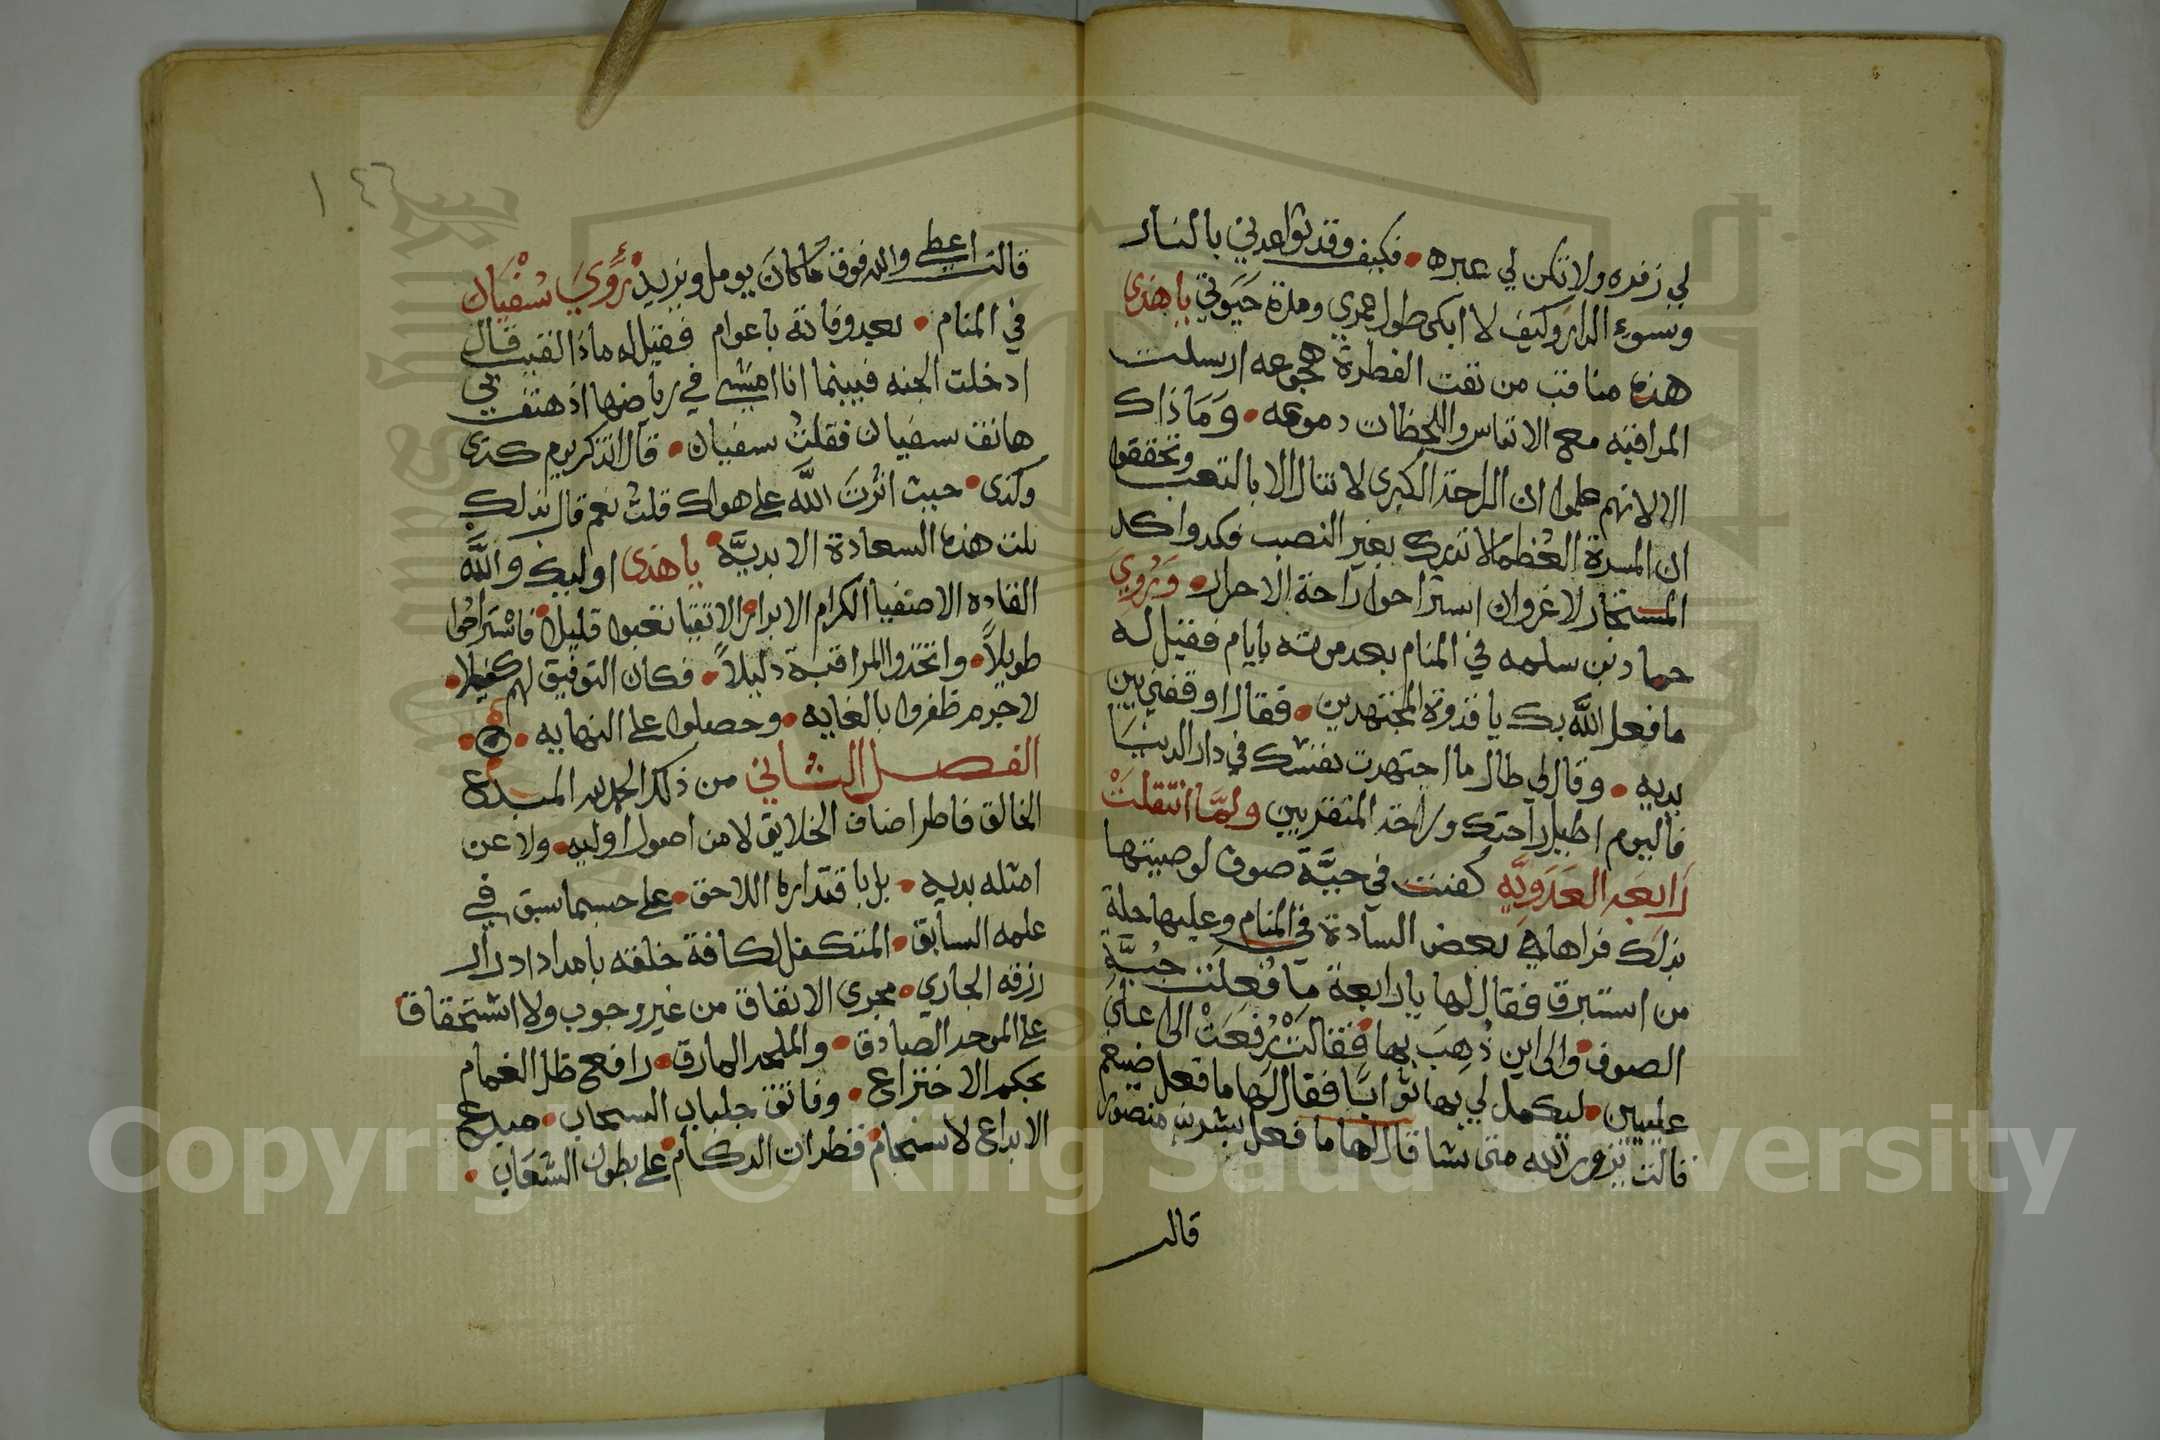 لي زفره ولا تكن لي عبره • فكيف وقد تواعدني بالنار
وسوء الدار وكيف لا ابكي طول عمري ومدة حيوتي يا هذى
هذه مناقب من نفت الفطرة هجوعه ارسلت
المراقبه مع الانفاس واللحظات دموعه • وما ذاك
الا لانهم علموا ان الراحة الكبرى لا تنال الا بالتعب وتحققوا
ان المسرة العظما لا تدرك بغير النصب فكدوا كد
المستجار لا غروان استراحوا راحة الاحرار • وروي
حماد بن سلمه في المنام بعد موته بايام فقيل له
ما فعل الله بك يا قدوة المجتهدين • فقال اوقفني بين
يديه • وقال لي طال ما اجتهدت نفسك في دار الدنيا
فاليوم اطيل راحتك وراحة المتقربين ولما انتقلت
رابعه العدويه كفنت في جبة صوف لوصيتها
بذلك فراها في بعض السادة في المنام وعليها حلة
من استبرق فقال لها يا رابعة ما فعلت جبة
الصوف • والى اين ذهب بها • فقالت رفعت الى اعلى
عليين • ليكمل لي بها ثوابا فقال لها ما فعل ضيغم
قالت يزور الله متى يشا قال لها ما فعل بشر بن منصور
قالت
١٤٦
قالت اعطي والله فوق ما كان يومل ويزيد • رؤي سفيان
في المنام • بعد وفاته باعوام فقيل له ماذا لقيت قال
ادخلت الجنه فبينما انا امشي في رياضها اذ هتف بي
هاتف سفيان فقلت سفيان • قال اتذكر يوم كذى
وكذى • حيث اثرت الله على هواك قلت نعم قال بذلك
نلت هذه السعادة الابديه • يا هذى اوليك والله
القاده الاصفيا الكرام الابرار الاتقيا تعبوا قليلا • فاستراحوا
طويلا • واتخذوا المراقبة دليلا • فكان التوفيق لهم كفيلا •
لا جرم ظفروا بالغايه • وحصلوا على النهايه •
الفصل الثاني من ذلك الحمد لله المبدع
الخالق فاطر اصناف الخلايق لا من اصول اوليه • ولا عن
امثله بديه • بل باقتداره اللاحق • على حسب ما سبق في
علمه السابق • المتكفل لكافة خلقه بامداد ادرار
رزقه الجاري • مجرى الانفاق من غير وجوب ولا استحقاق
على الموحد الصادق • والملحد المارق • رافع ظلل الغمام
بحكم الاختراع • وفاتق جلباب السحاب • مبدع
الابداع لانسجام قطرات الركام على بطون الشعاب •